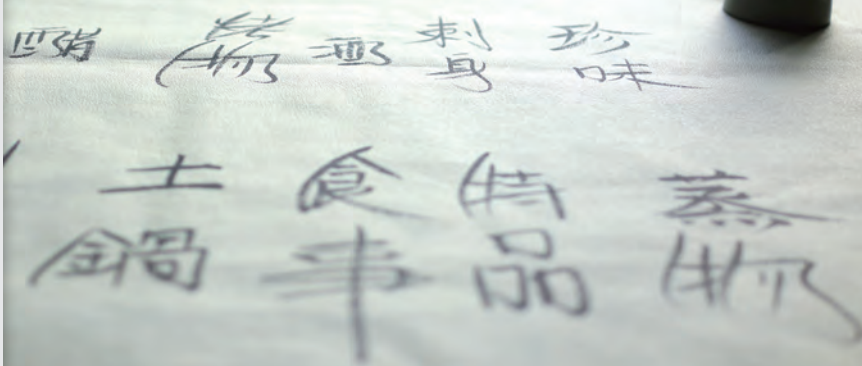 珍味
刺身
蒸物
特品
食事
土鍋